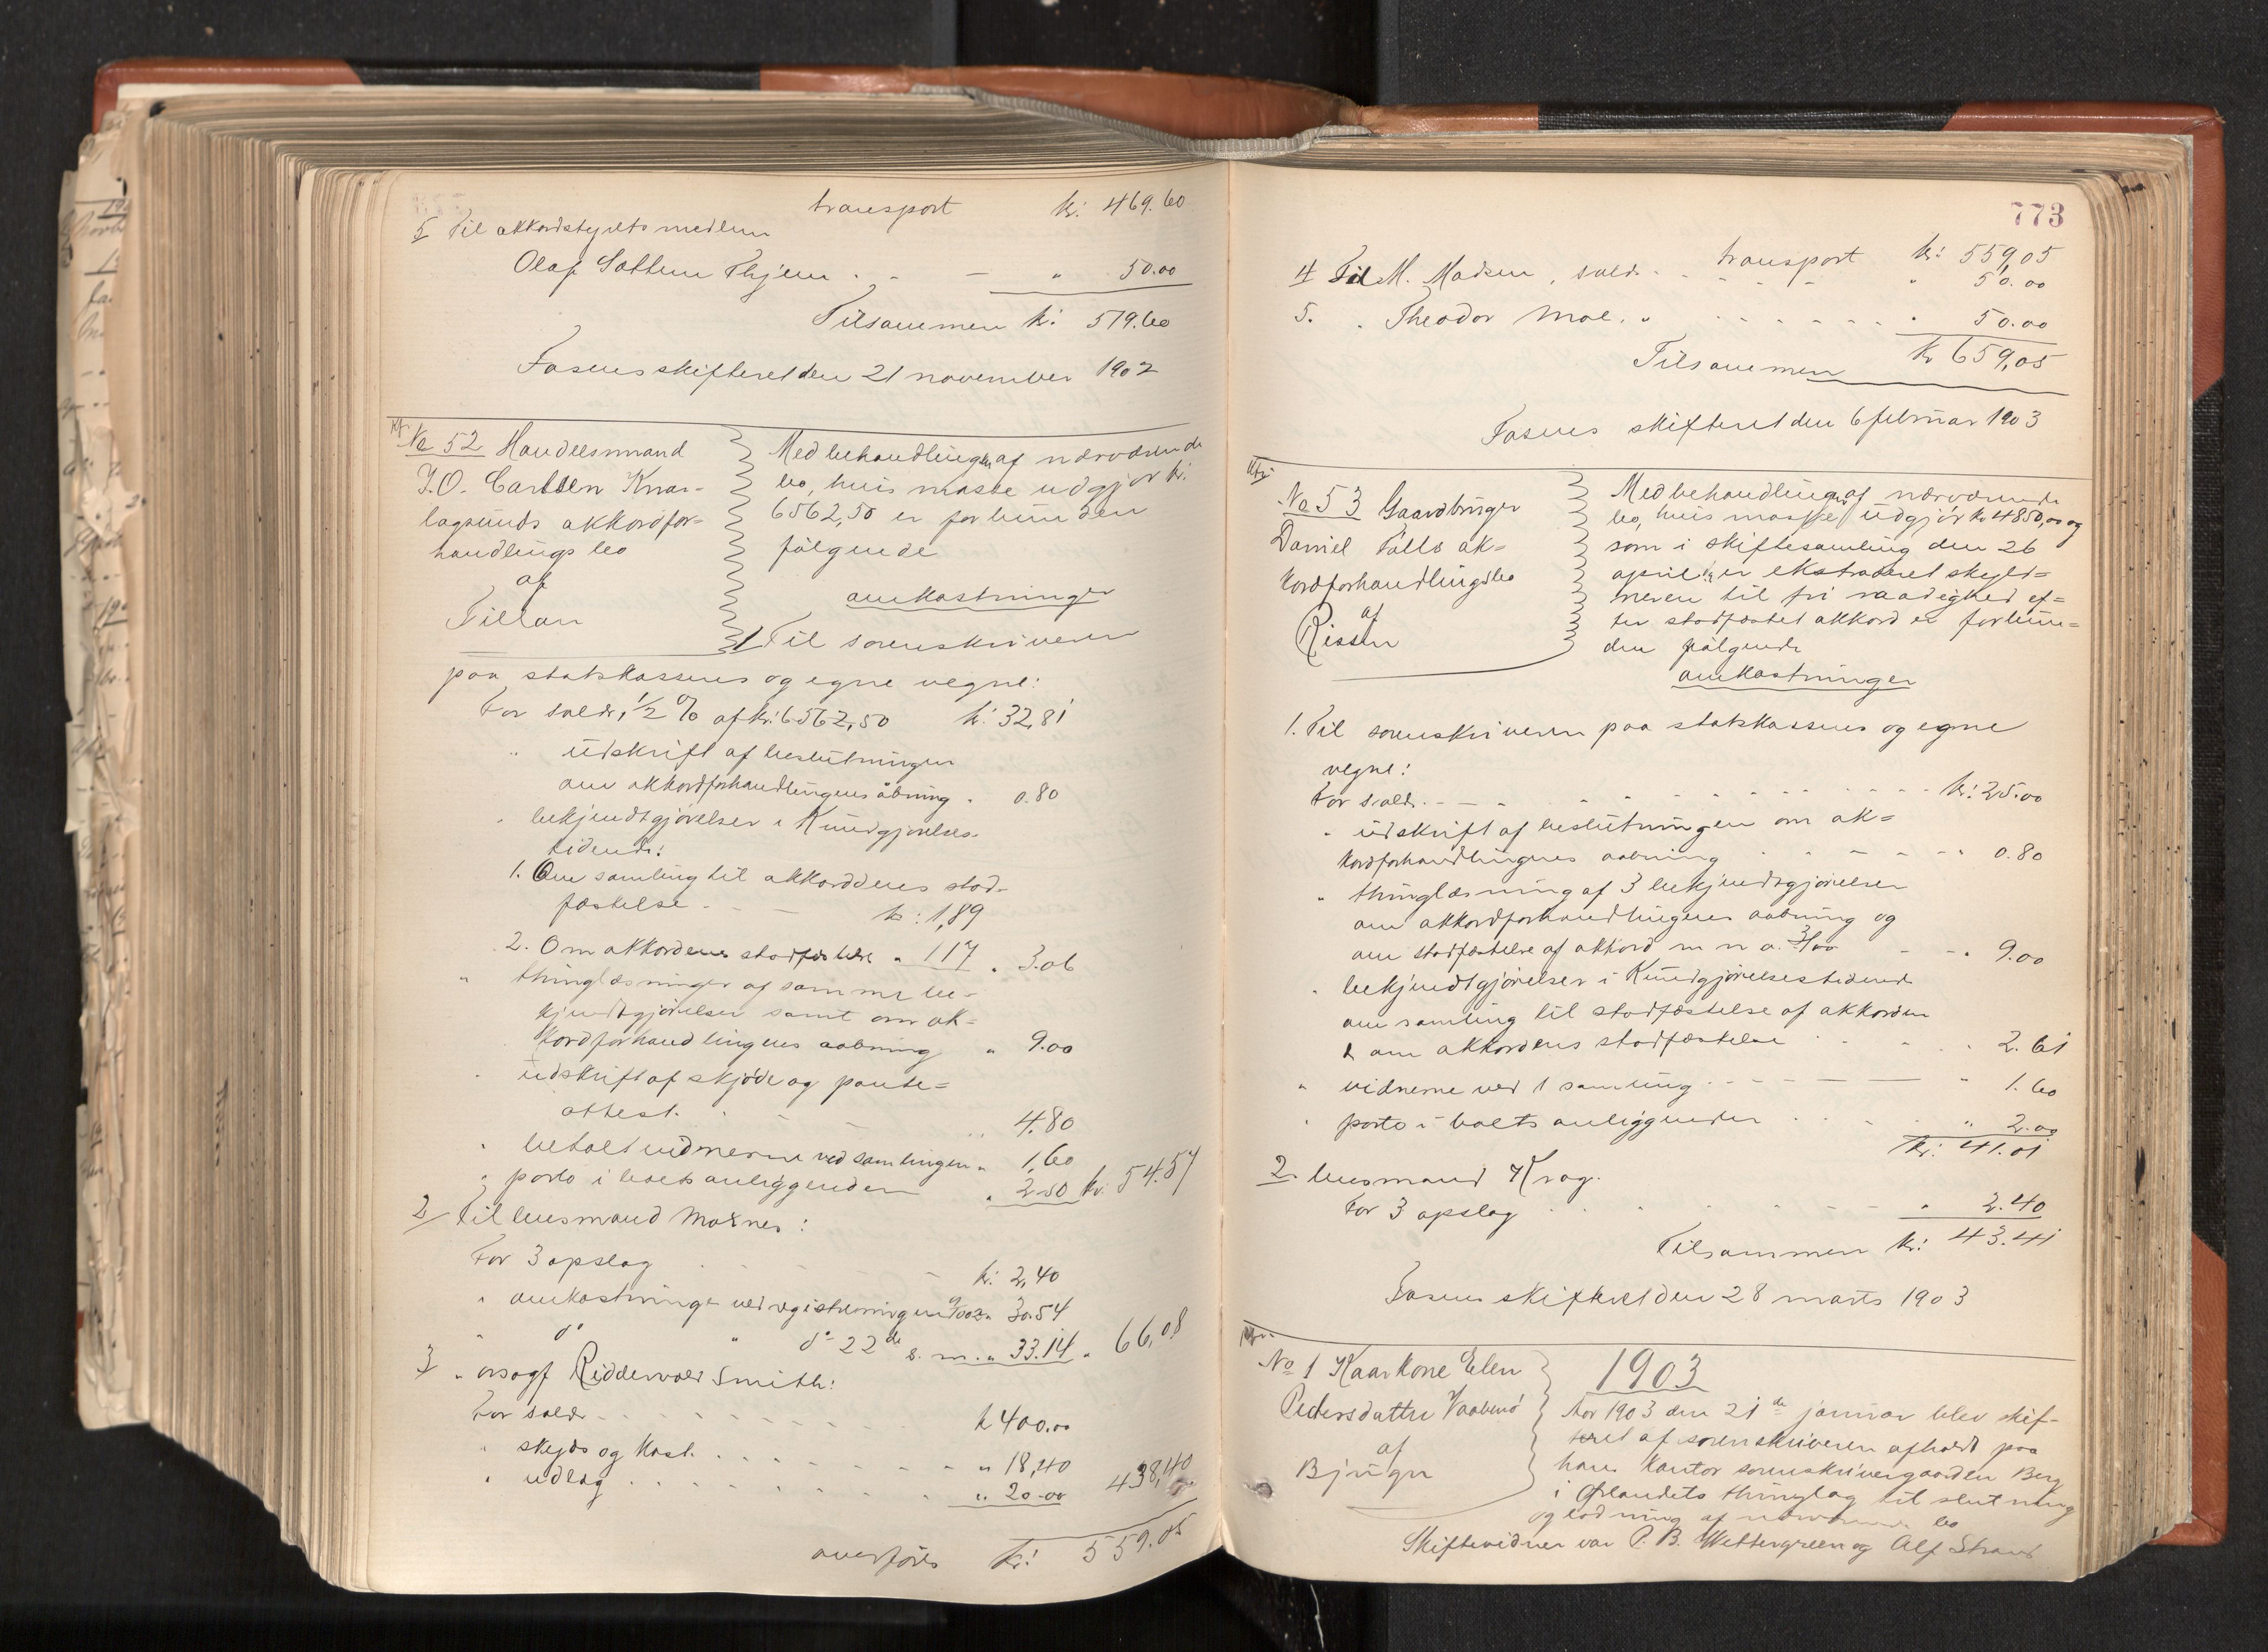 transport kr: 469.60
5 Til akkordstyrets medlem
Olaf Sattem Thjem . - — " 50.00
Tilsammen kr: 519.60
Fosens skifteret den 21 november 1902
No 52 Handelsmand
J.O. Carlsen Knar-
lagsunds akkordfor=
handlings bo
af
Fillan
Med behandlingen af nærværende
bo, huis masse udgjør kr.
6562,50 er forbunden
følgende
omkostninger
1 Til sorenskriveren
paa statskassens og egne vegne:
For salær, 1/2 % af kr: 6562,50 kr: 32,81
" udskrift af beslutningen
om akkordforhandlingens åbning " 0.80
" bekjendtgjørelser i Kundgjørelses-
tidende:
1. Om samling til akkordens stad-
fæstelse . - — kr: 1,89
2. Om akkordens stadfæstelse " 1 17 " 3.06
" thinglæsninger af samme be-
kjendtgjørelser samt om ak=
kordforhandlingens aabning " 9.00
" udskrift af skjøde og pante=
attest. " 4.80
" betalt vidnerne ved samlingen " 1,60
" porto i boets anliggender " 2.50 kr. 54.57
2 Til lensmand Moxnes:
For 3 opslag kr. 2,40
" omkostninger ved registreringen 30.54
" do " do 22de s. m. " 33.14 " 66,08
3 " orsagf Riddervold Smith:
For salær kr 400.00
" skyds og kost " 18,40
" udlæg " 20.00 438,40
overføres kr: 559.05
773
transport kr: 559,05
4 Til M. Madsen, salær " 50.00
5. " Theodor Moe, " " 50.00
Tilsammen kr 659,05
Fosens skifteret den 6 februar 1903
No 53 Gaardbruger
Daniel Fålls ak=
kordforhandlingsbo
af
Rissen
Med behandlingen af nærværende
bo, huis masse udgjør kr 4850,00 og
som i skiftesamling den 26
april er ekstraderet skyld=
neren til fri raadighed ef=
ter stadfæstet akkord er forbun=
den følgende
omkostninger
1. Til sorenskriveren paa statskassens og egne
vegne:
For salær kr: 25.00
" udskrift af beslutningen om ak=
kordforhandlingens aabning " 0.80
" thinglæsning af 3 bekjendtgjørelser
om akkordforhandlingens aabning og
om stadfæstelse af akkord m m a. 3/00 " 9.00
" bekjendtgjørelser i Kundgjørelsestidende
om samling til stadfæstelse af akkorden
& om akkordens stadfæstelse " 2.61
" vidnerne ved 1 samling " 1.60
" porto i boets anliggender " 2.00
kr: 41.01
2. lensmand Krog.
For 3 opslag " 2.40
Tilsammen kr: 43.41
Fosens skifteret den 28 marts 1903
No 1 Kaarkone Elen
Pedersdatter
af
Bjugn
1903
Aar 1903 den 21de januar blev skif-
teret af sorenskriveren afholdt paa
hans kontor sorenskrivergaarden Berg
i Ørlandets thinglag til slutning
og lodning af nærværende bo
Skiftevidner var P. B. Wettergreen og Alf Strand